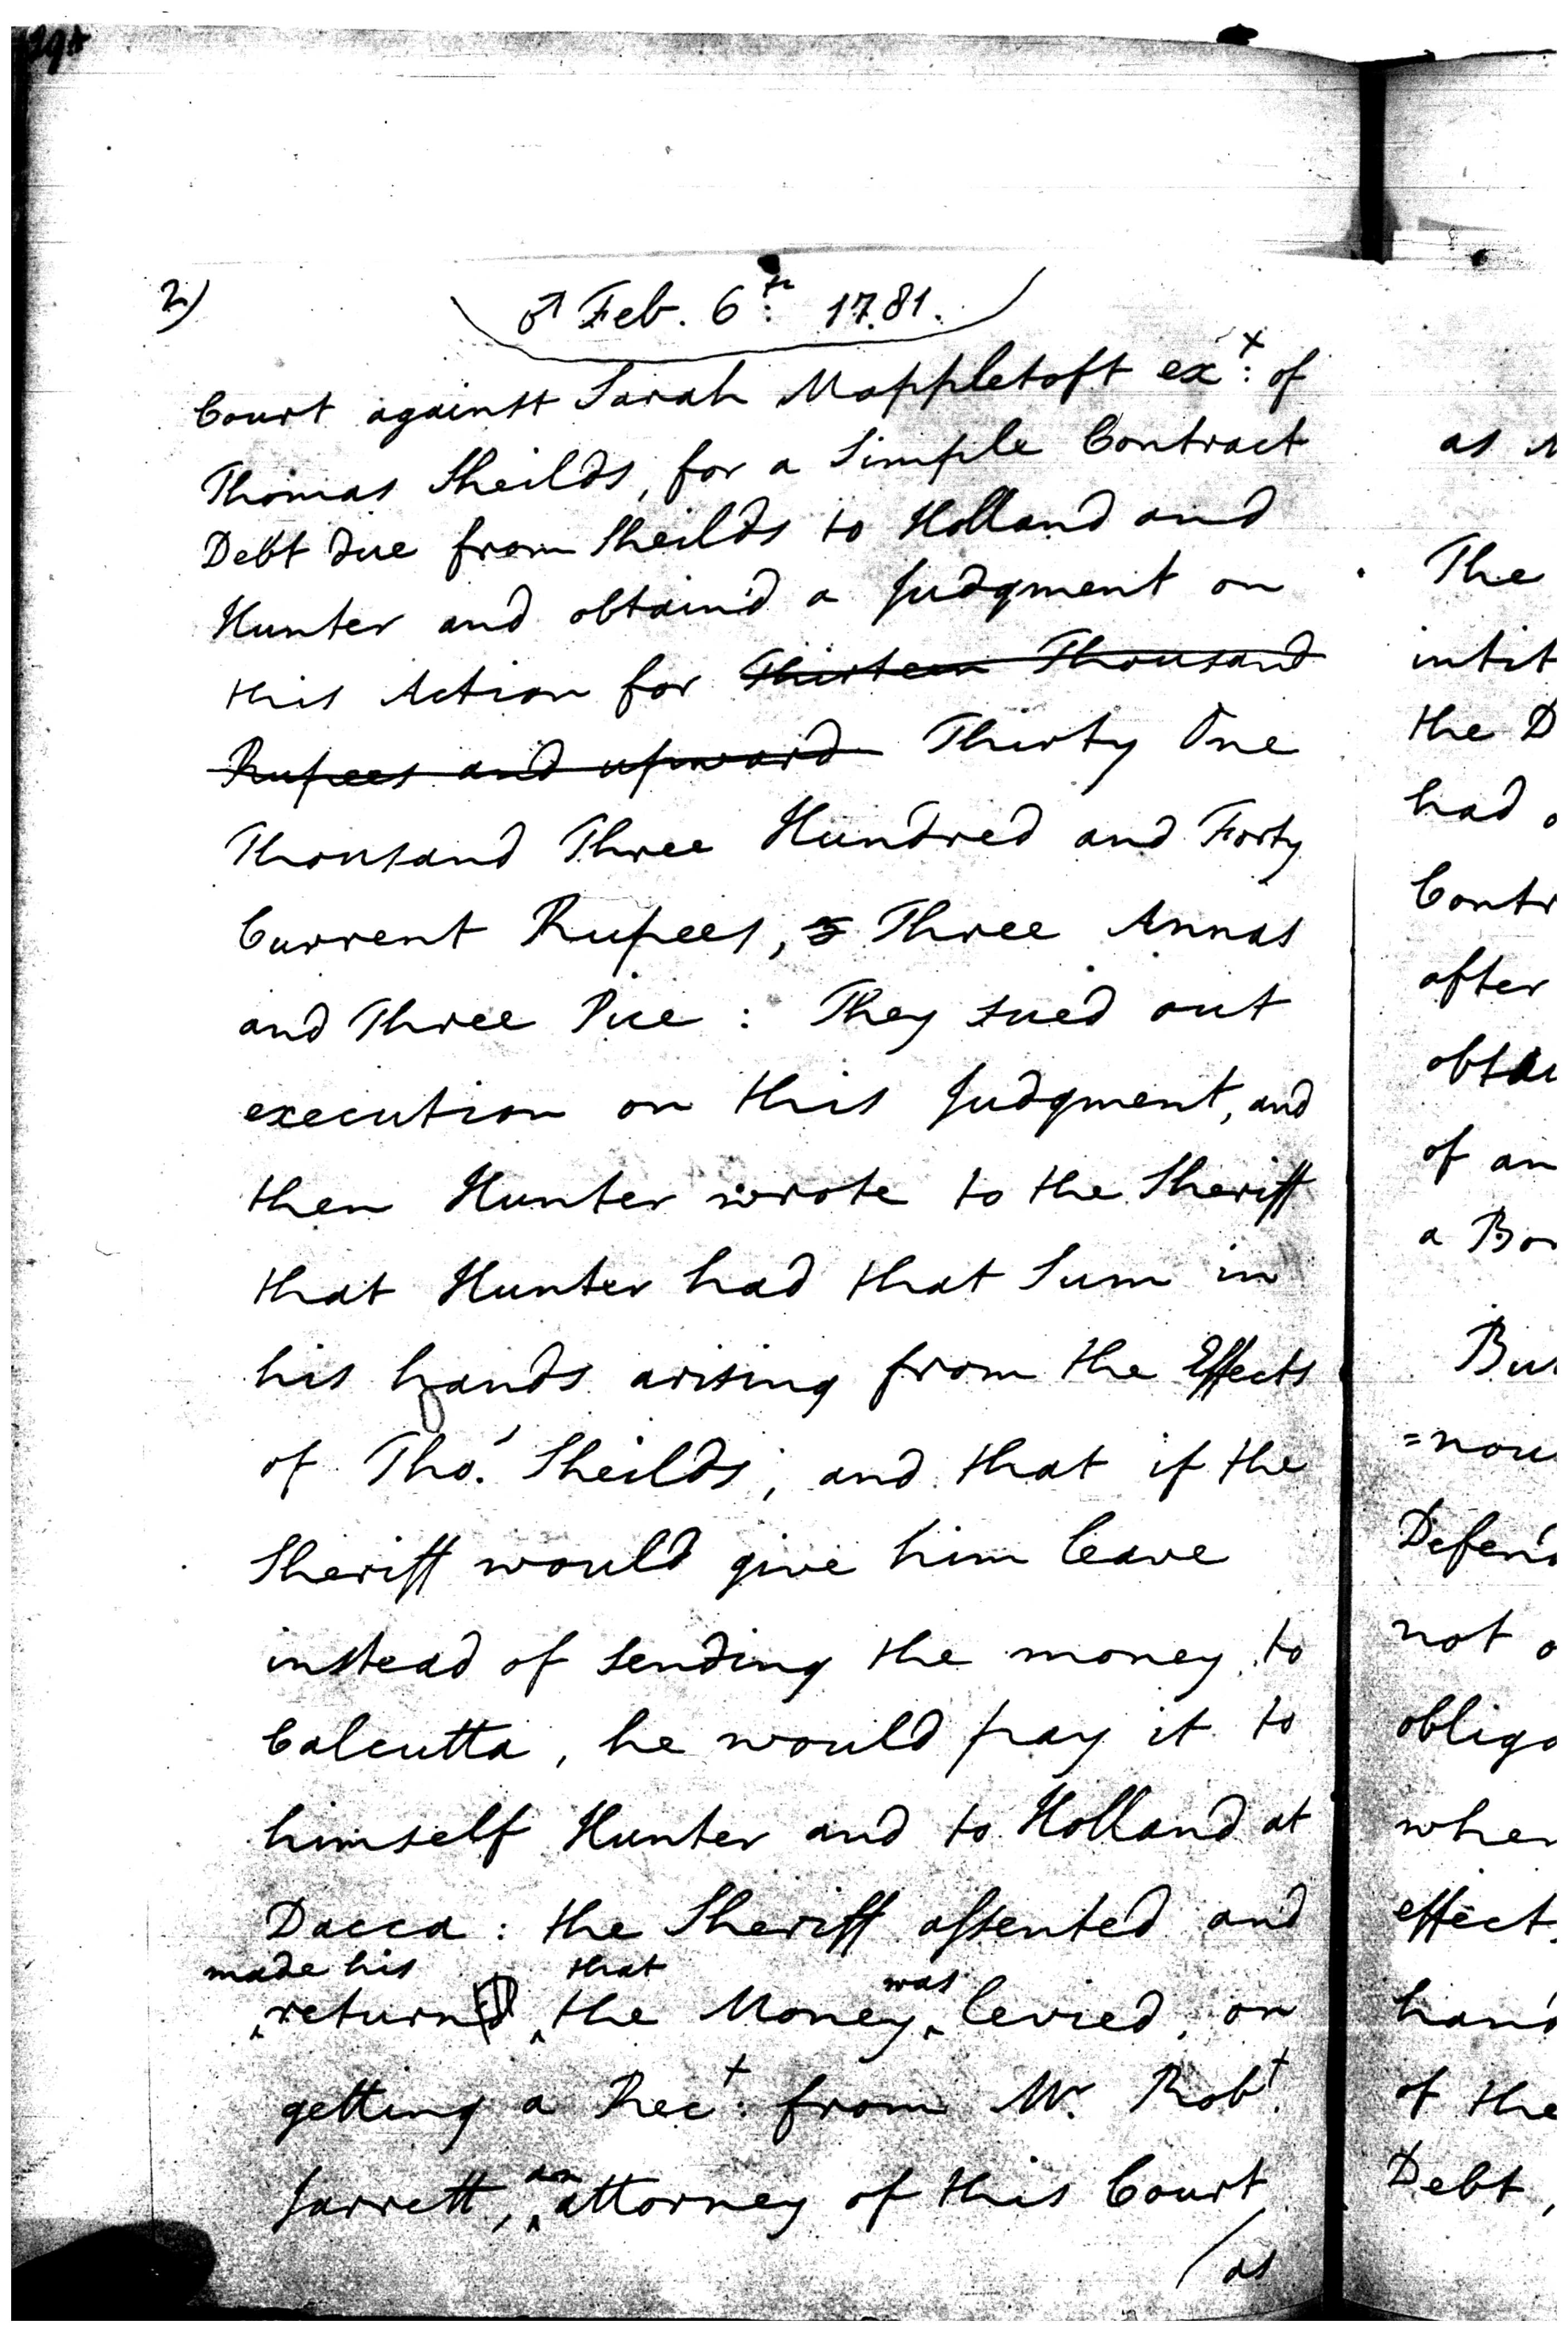 2)
♂ Feb. 6th: 1781.
Court against Sarah Mappletoft ex^x: of
Thomas Sheilds, for a Simple Contract
Debt due from Sheilds to Holland and
Hunter and obtain'd a Judgment on
this Action for Thirteen Thousand
Rupees and upward Thirty One
Thousand Three Hundred and Forty
Current Rupees, Three Annas
and Three Pice : They sued out
execution on this Judgment, and
then Hunter wrote to the Sheriff
that Hunter had that Sum in
his hands arising from the Effects
of Tho.s Sheilds, and that if the
Sheriff would give him leave
instead of sending the money to
Calcutta, he would pay it to
himself Hunter and to Holland at
Dacca : the Sheriff assented and
made his that was
^return'd ^the Money ^levied, on
getting a Rec^t: from Mr. Rob^t.
an
Jarrett, ^attorney of this Court,
/as
as
The
intit
the D
had
Contr
after
obtai
of an
a Bon
But
=nou
Defend
not o
obliga
when
effects
hand
of the
Debt,